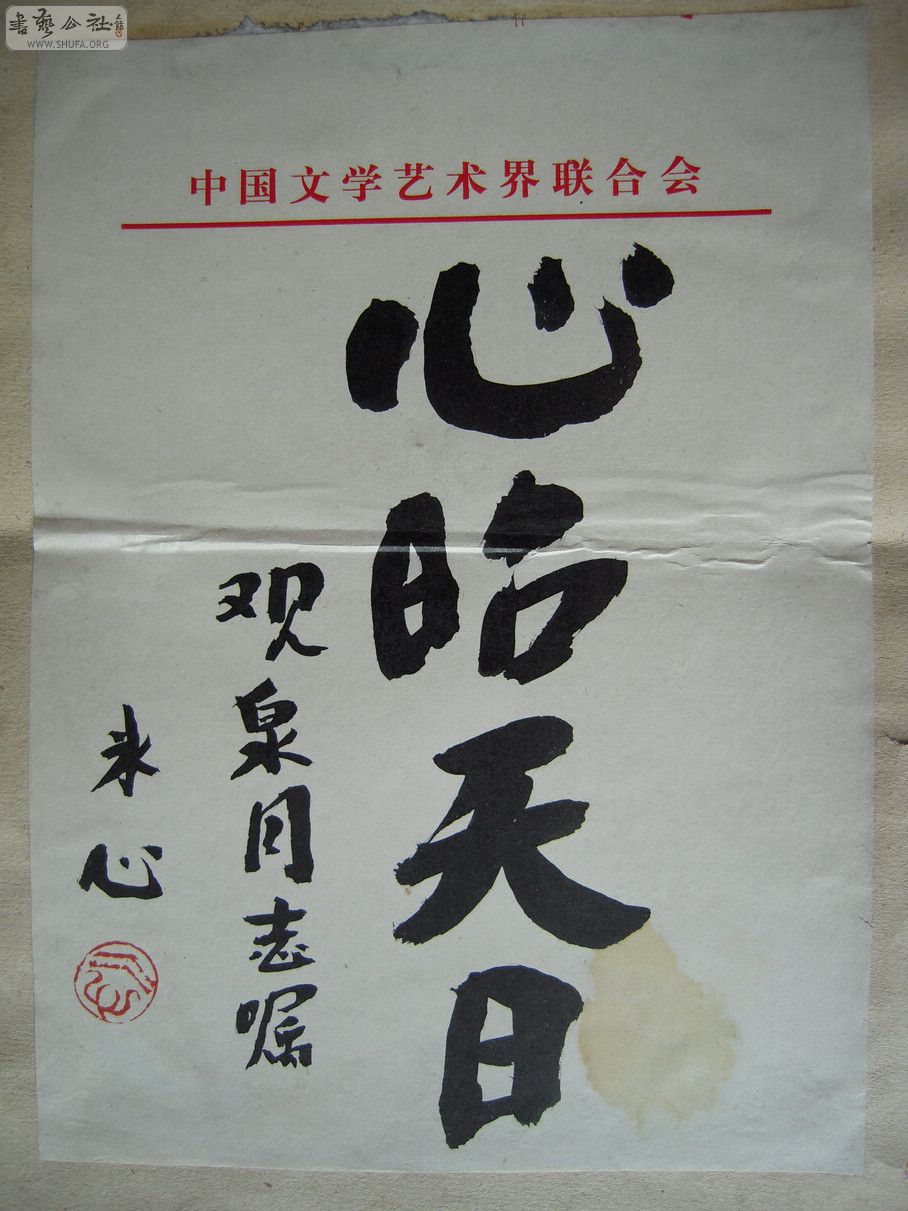 書藝公社
WWW.SHUFA.ORG
中国文学艺术界联合会
心昭天日
观泉同志嘱
冰心